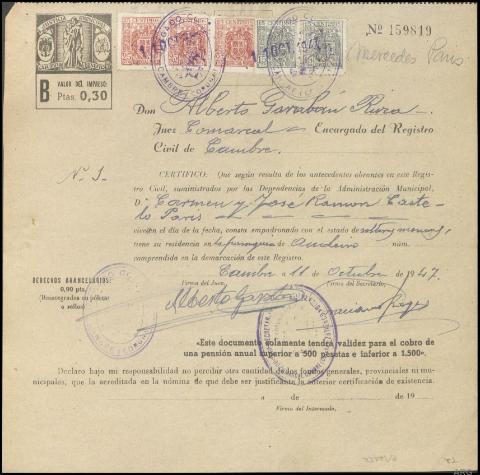 Nº 159819
Mercedes Paris
B VALOR DEL IMPRESO:
Ptas. 0,30
11 OCT. 1947
Don Alberto Garabán Rivea
Juez Comarcal Encargado del Registro
Civil de Cambre.
Nº 1
CERTIFICO: Que según resulta de los antecedentes obrantes en este Regis-
tro Civil, suministrados por las Dependencias de la Administración Municipal,
D. Carmen y José Ramon Caste-
lo Paris
viven en el día de la fecha, consta empadronado con el estado de solteros menores,
tiene su residencia en la parroquia de núm.
comprendida en la demarcación de este Registro.
Cambre a 11 de Octubre de 1947.
DERECHOS ARANCELARIOS:
0,90 pts.
(Reintegrados en pólizas
o sellos)
Firma del Juez,
Firma del Secretario,
Alberto
«Este documento solamente tendrá validez para el cobro de
una pensión anual superior a 500 pesetas e inferior a 1,500».
Declaro bajo mi responsabilidad no percibir otra cantidad de los fondos generales, provinciales ni mu-
nicipales, que la acreditada en la nómina de que debe ser justificante la anterior certificación de existencia.
a de de 19
Firma del Interesado,